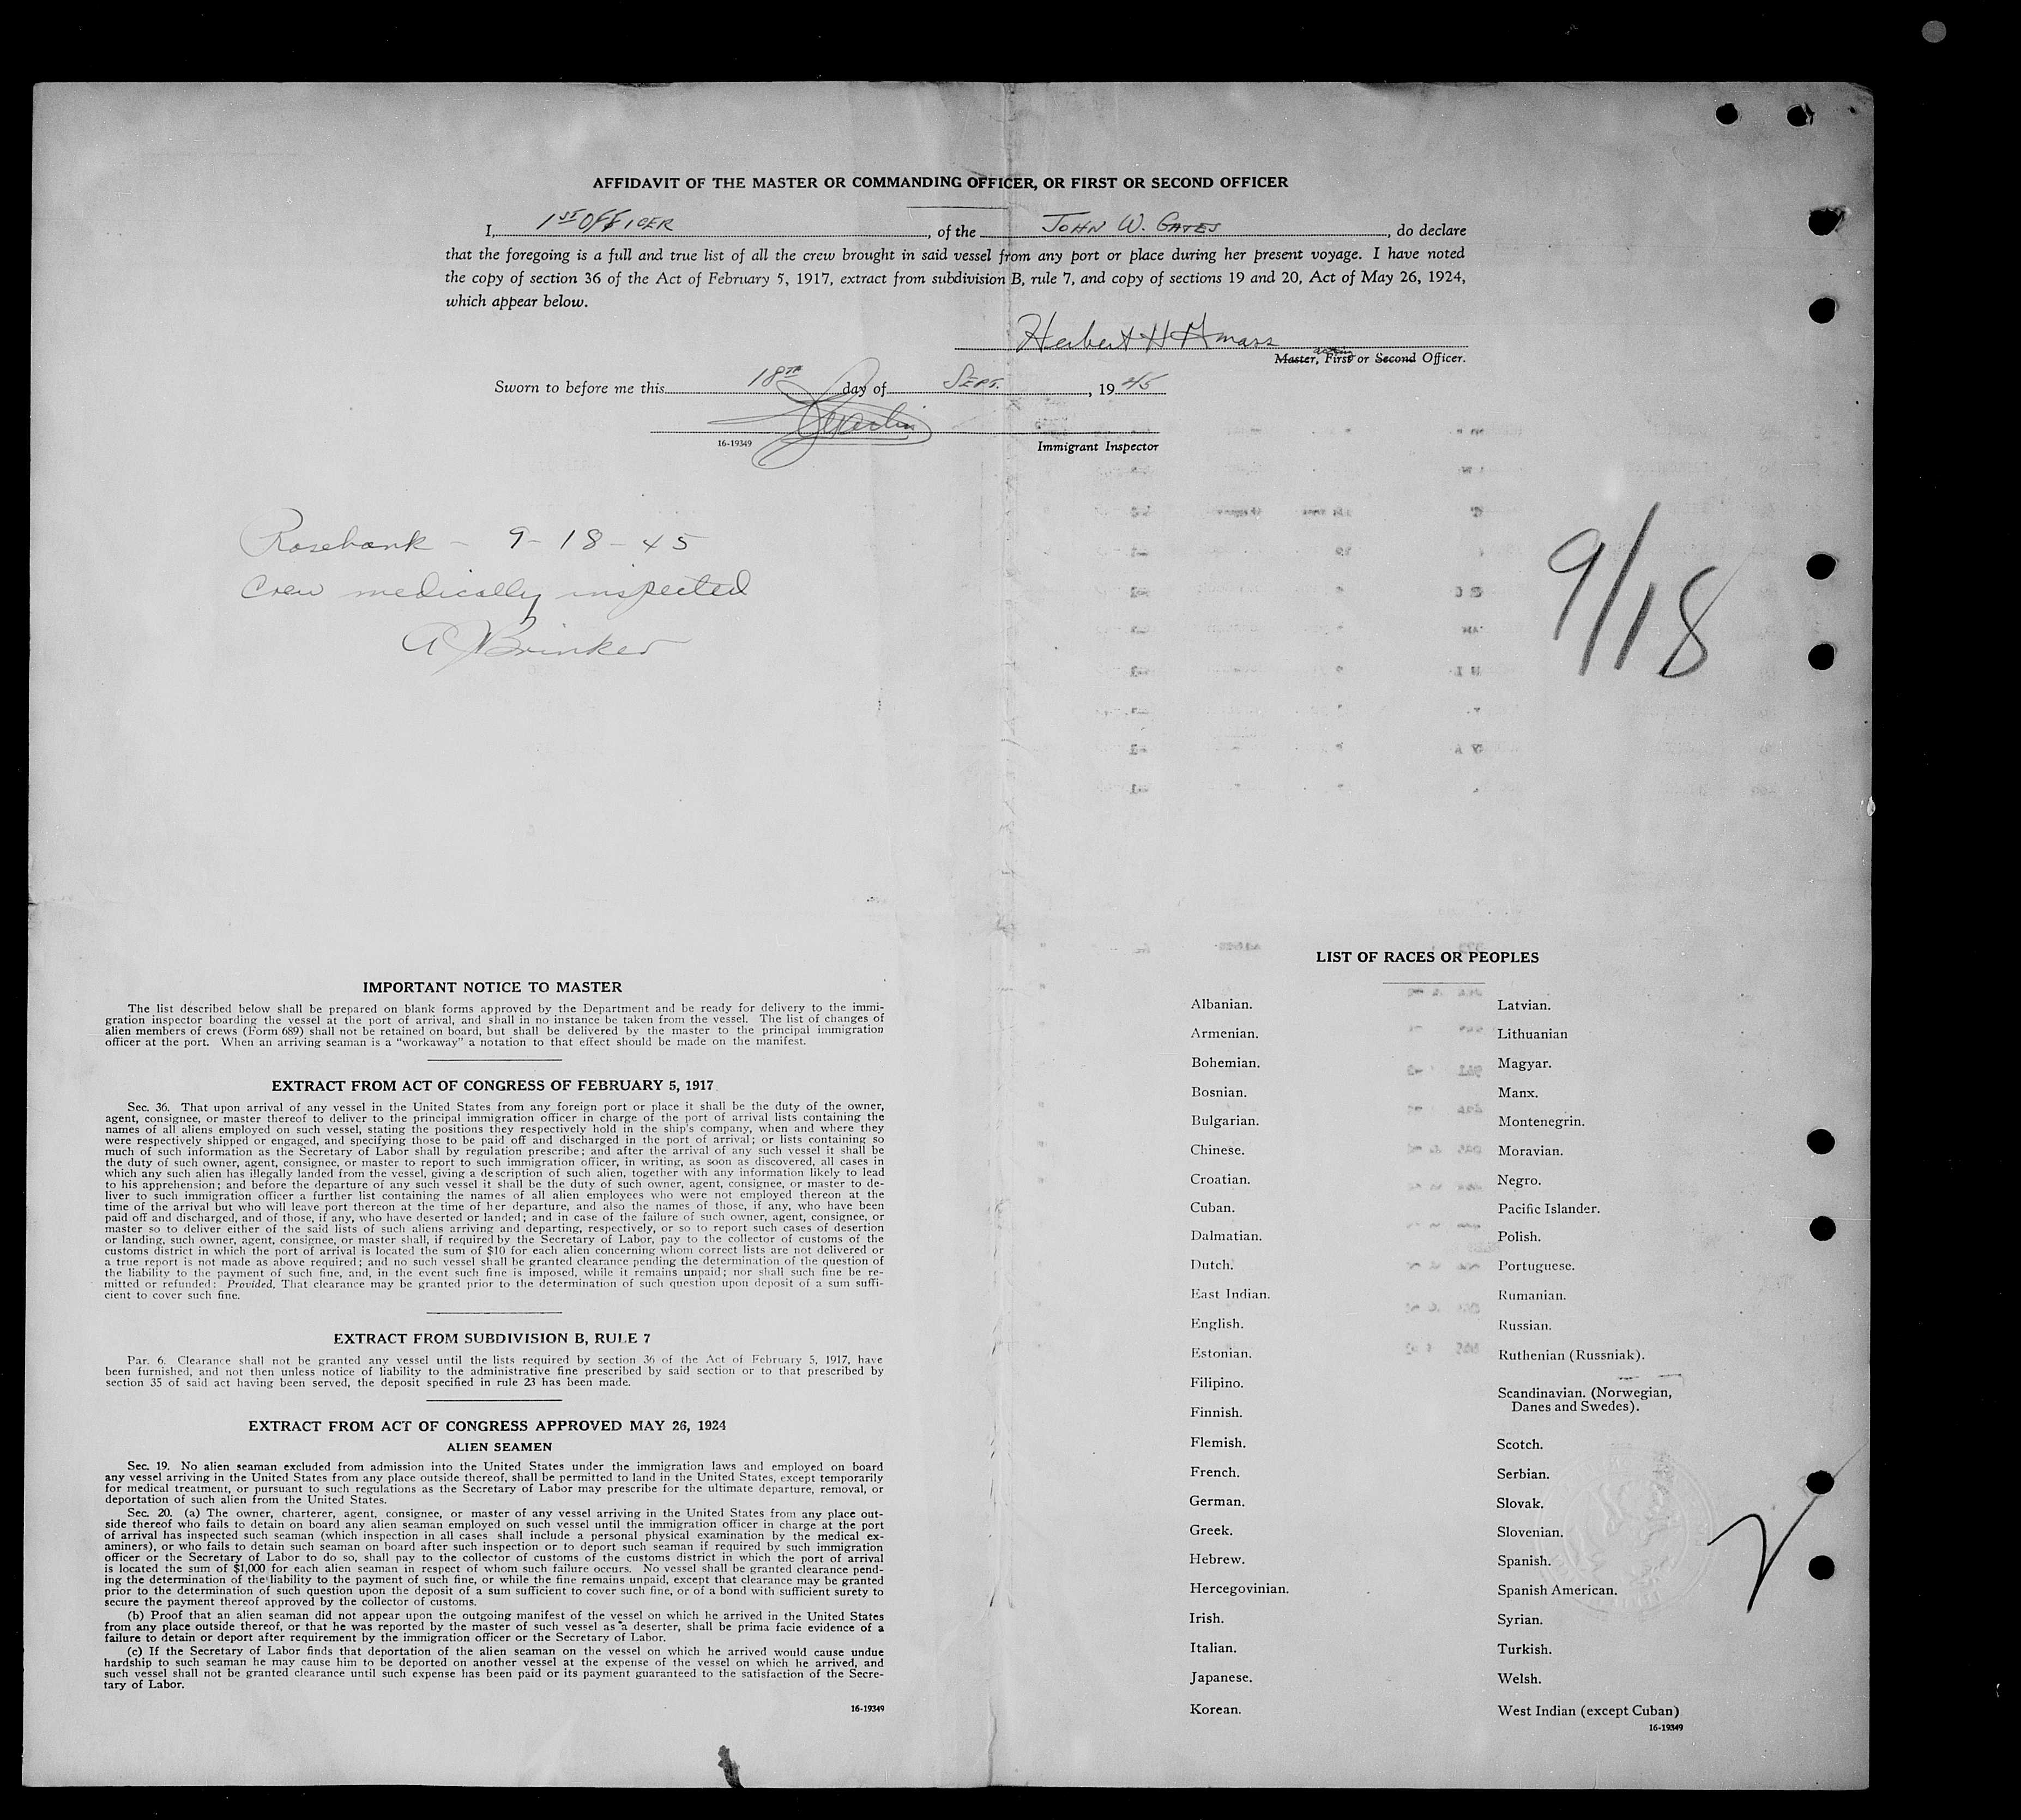 AFFIDAVIT OF THE MASTER OR COMMANDING OFFICER, OR FIRST OR SECOND OFFICER
I, 1ST OFFICER, of the JOHN W. GATES, do declare
that the foregoing is a full and true list of all the crew brought in said vessel from any port or place during her present voyage. I have noted
the copy of section 36 of the Act of February 5, 1917, extract from subdivision B, rule 7, and copy of sections 19 and 20, Act of May 26, 1924,
which appear below.
Herbert H
Master, First or Second Officer.
Sworn to before me this 18TH day of SEPT., 19 45
16-19349
Immigrant Inspector
Rosebank - 9-18-45
Crew medically inspected
A Brinker
9/18
IMPORTANT NOTICE TO MASTER
The list described below shall be prepared on blank forms approved by the Department and be ready for delivery to the immi-
gration inspector boarding the vessel at the port of arrival, and shall in no instance be taken from the vessel. The list of changes of
alien members of crews (Form 689) shall not be retained on board, but shall be delivered by the master to the principal immigration
officer at the port. When an arriving seaman is a "workaway" a notation to that effect should be made on the manifest.
EXTRACT FROM ACT OF CONGRESS OF FEBRUARY 5, 1917
Sec. 36. That upon arrival of any vessel in the United States from any foreign port or place it shall be the duty of the owner,
agent, consignee, or master thereof to deliver to the principal immigration officer in charge of the port of arrival lists containing the
names of all aliens employed on such vessel, stating the positions they respectively hold in the ship's company, when and where they
were respectively shipped or engaged, and specifying those to be paid off and discharged in the port of arrival; or lists containing so
much of such information as the Secretary of Labor shall by regulation prescribe; and after the arrival of any such vessel it shall be
the duty of such owner, agent, consignee, or master to report to such immigration officer, in writing, as soon as discovered, all cases in
which any such alien has illegally landed from the vessel, giving a description of such alien, together with any information likely to lead
to his apprehension; and before the departure of any such vessel it shall be the duty of such owner, agent, consignee, or master to de-
liver to such immigration officer a further list containing the names of all alien employees who were not employed thereon at the
time of the arrival but who will leave port thereon at the time of her departure, and also the names of those, if any, who have been
paid off and discharged, and of those, if any, who have deserted or landed; and in case of the failure of such owner, agent, consignee, or
master so to deliver either of the said lists of such aliens arriving and departing, respectively, or so to report such cases of desertion
or landing, such owner, agent, consignee, or master shall, if required by the Secretary of Labor, pay to the collector of customs of the
customs district in which the port of arrival is located the sum of $10 for each alien concerning whom correct lists are not delivered or
a true report is not made as above required; and no such vessel shall be granted clearance pending the determination of the question of
the liability to the payment of such fine, and, in the event such fine is imposed, while it remains unpaid; nor shall such fine be re-
mitted or refunded: Provided, That clearance may be granted prior to the determination of such question upon deposit of a sum suffi-
cient to cover such fine.
EXTRACT FROM SUBDIVISION B, RULE 7
Par. 6. Clearance shall not be granted any vessel until the lists required by section 36 of the Act of February 5, 1917, have
been furnished, and not then unless notice of liability to the administrative fine prescribed by said section or to that prescribed by
section 35 of said act having been served, the deposit specified in rule 23 has been made.
EXTRACT FROM ACT OF CONGRESS APPROVED MAY 26, 1924
ALIEN SEAMEN
Sec. 19. No alien seaman excluded from admission into the United States under the immigration laws and employed on board
any vessel arriving in the United States from any place outside thereof, shall be permitted to land in the United States, except temporarily
for medical treatment, or pursuant to such regulations as the Secretary of Labor may prescribe for the ultimate departure, removal, or
deportation of such alien from the United States.
Sec. 20. (a) The owner, charterer, agent, consignee, or master of any vessel arriving in the United States from any place out-
side thereof who fails to detain on board any alien seaman employed on such vessel until the immigration officer in charge at the port
of arrival has inspected such seaman (which inspection in all cases shall include a personal physical examination by the medical ex-
aminers), or who fails to detain such seaman on board after such inspection or to deport such seaman if required by such immigration
officer or the Secretary of Labor to do so, shall pay to the collector of customs of the customs district in which the port of arrival
is located the sum of $1,000 for each alien seaman in respect of whom such failure occurs. No vessel shall be granted clearance pend-
ing the determination of the liability to the payment of such fine, or while the fine remains unpaid, except that clearance may be granted
prior to the determination of such question upon the deposit of a sum sufficient to cover such fine, or of a bond with sufficient surety to
secure the payment thereof approved by the collector of customs.
(b) Proof that an alien seaman did not appear upon the outgoing manifest of the vessel on which he arrived in the United States
from any place outside thereof, or that he was reported by the master of such vessel as a deserter, shall be prima facie evidence of a
failure to detain or deport after requirement by the immigration officer or the Secretary of Labor.
(c) If the Secretary of Labor finds that deportation of the alien seaman on the vessel on which he arrived would cause undue
hardship to such seaman he may cause him to be deported on another vessel at the expense of the vessel on which he arrived, and
such vessel shall not be granted clearance until such expense has been paid or its payment guaranteed to the satisfaction of the Secre-
tary of Labor.
16-19349
LIST OF RACES OR PEOPLES
Albanian.
Armenian.
Bohemian.
Bosnian.
Bulgarian.
Chinese.
Croatian.
Cuban.
Dalmatian.
Dutch.
East Indian.
English.
Estonian.
Filipino.
Finnish.
Flemish.
French.
German.
Greek.
Hebrew.
Hercegovinian.
Irish.
Italian.
Japanese.
Korean.
Latvian.
Lithuanian
Magyar.
Manx.
Montenegrin.
Moravian.
Negro.
Pacific Islander.
Polish.
Portuguese.
Rumanian.
Russian.
Ruthenian (Russniak).
Scandinavian. (Norwegian,
Danes and Swedes).
Scotch.
Serbian.
Slovak.
Slovenian.
Spanish.
Spanish American.
Syrian.
Turkish.
Welsh.
West Indian (except Cuban)
16-19349